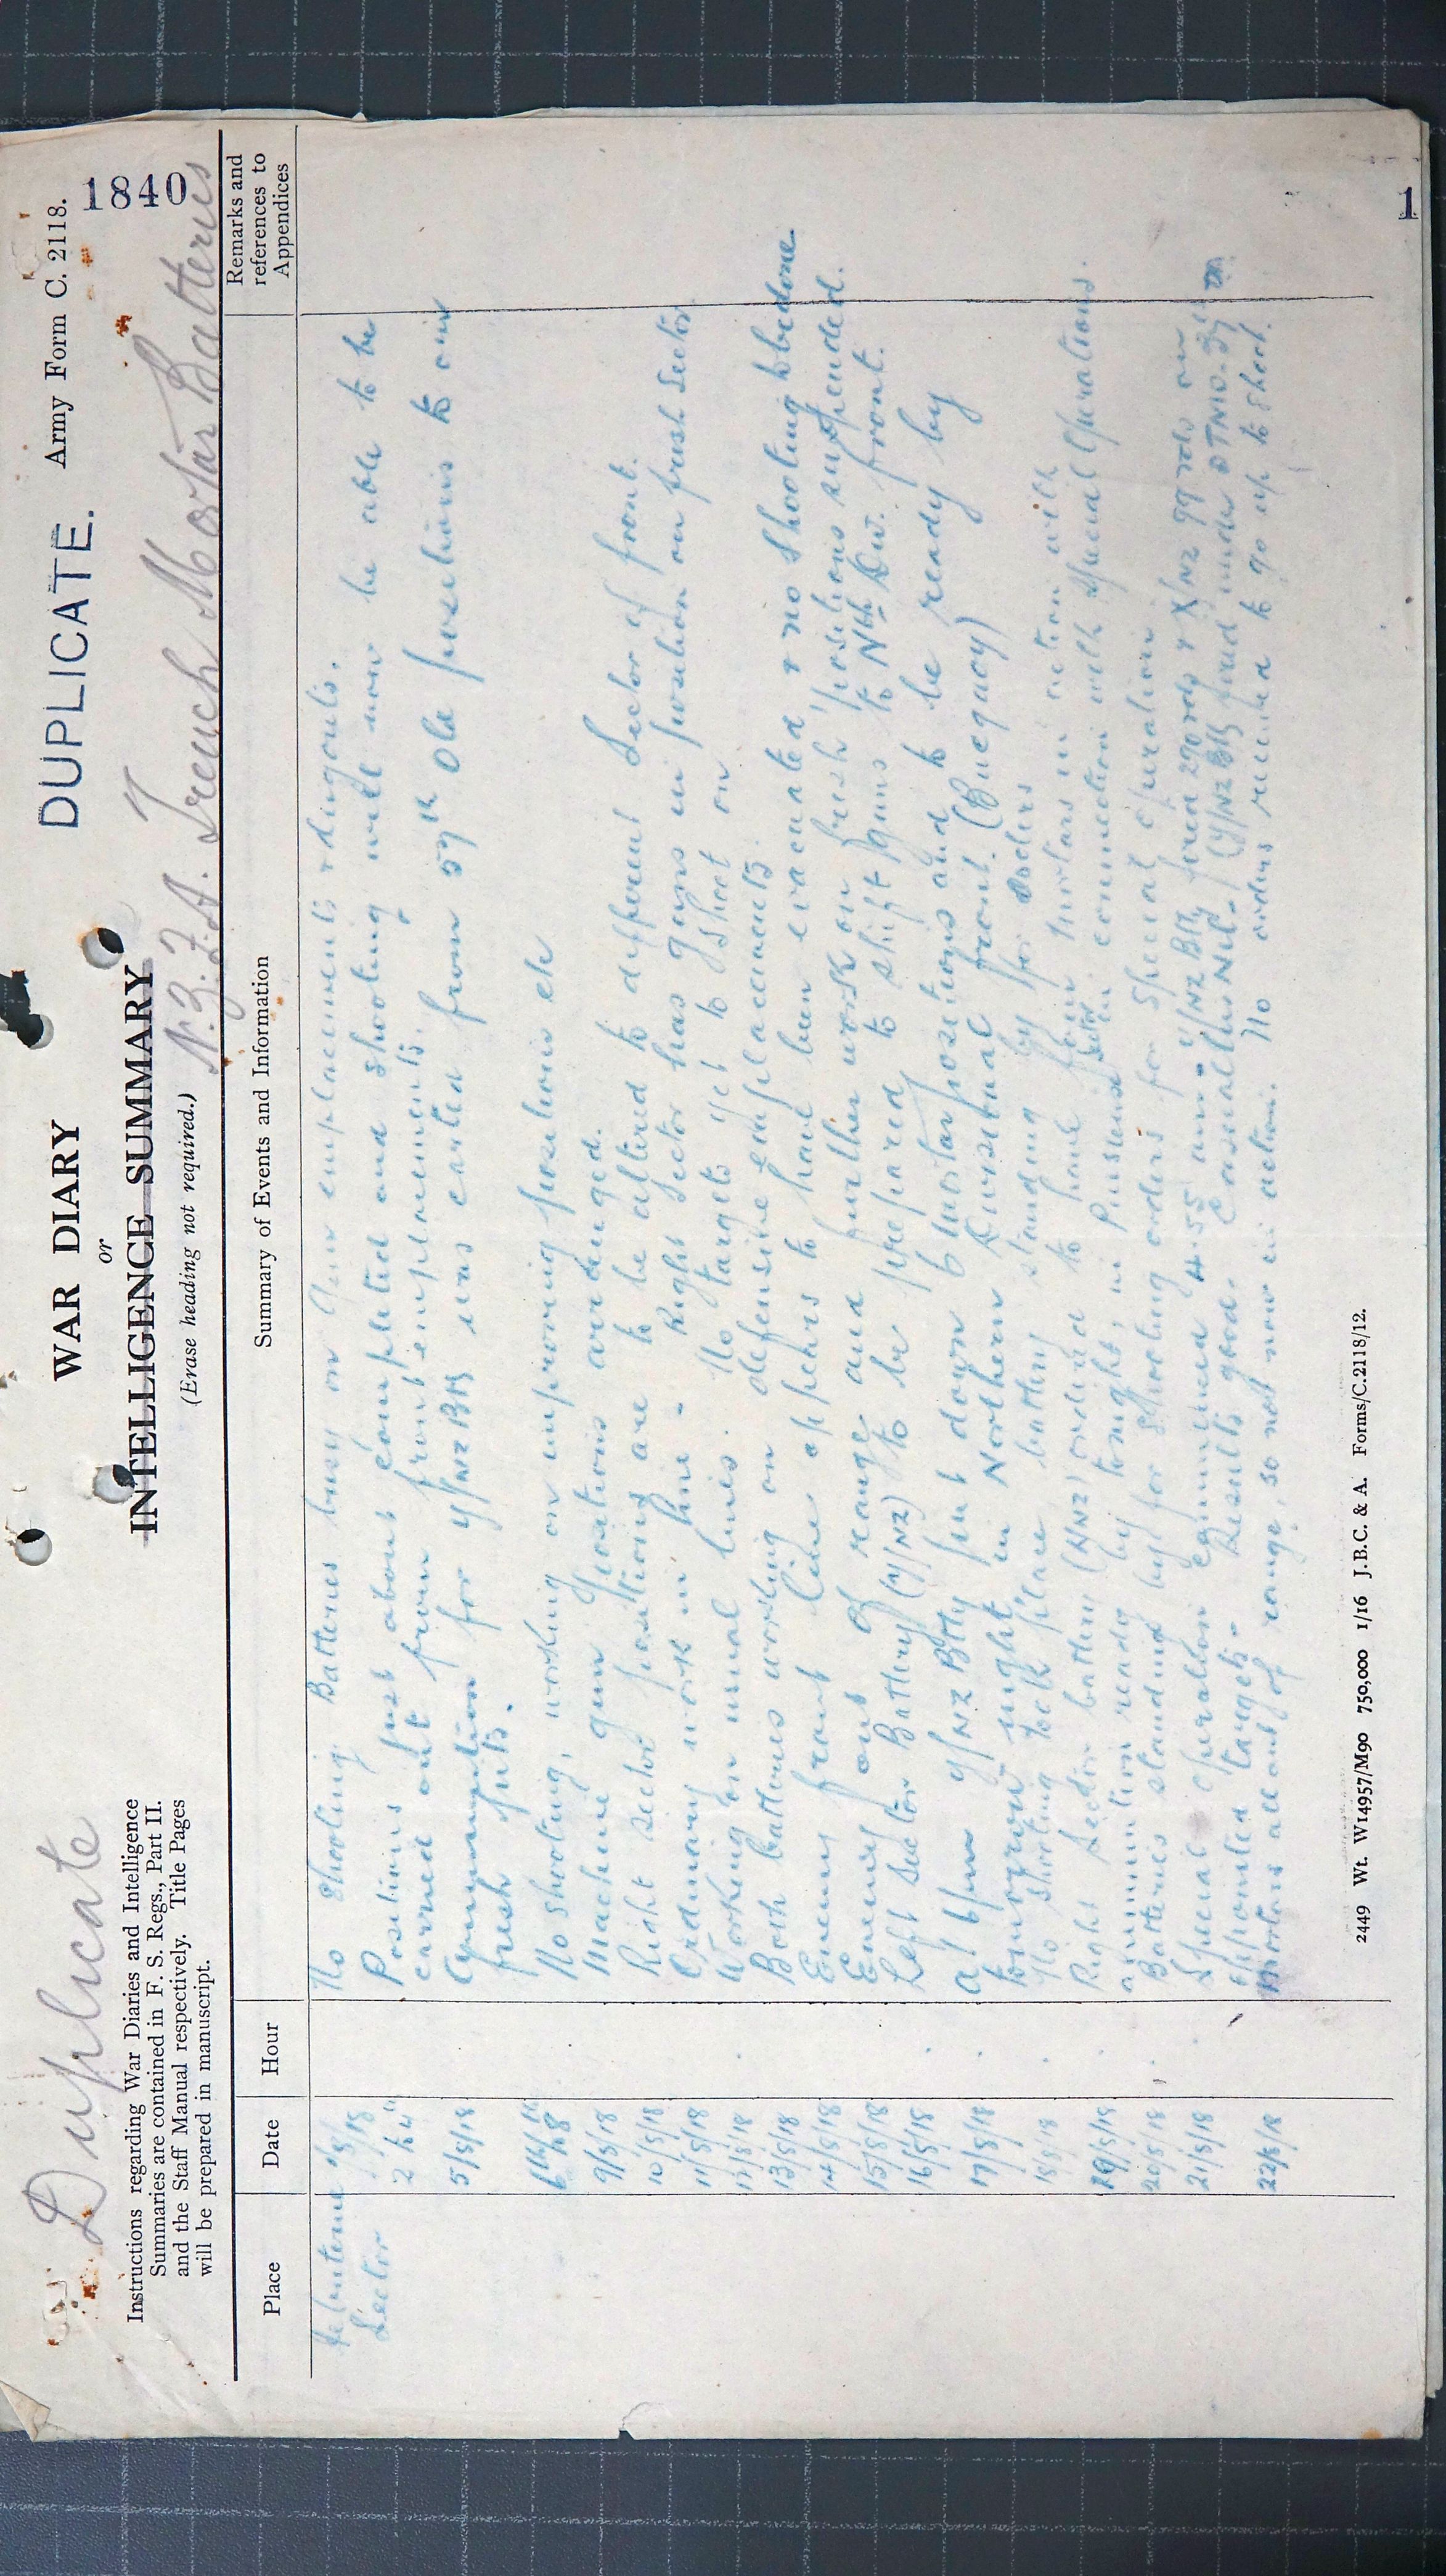 Duplicate
DUPLICATE.
Army Form C. 2118.
1840
WAR DIARY
or
INTELLIGENCE SUMMARY
(Erase heading not required.)
N.Z.F.A. Trench Mortar Batteries
Instructions regarding War Diaries and Intelligence
Summaries are contained in F. S. Regs., Part II.
and the Staff Manual respectively. Title Pages
will be prepared in manuscript.
Place Date Hour Summary of Events and Information Remarks and references to Appendices
Sector
No shooting. Batteries busy on Gun emplacements & dugouts.
Positions just about completed and shooting will now be able to be
carried out from front emplacements.
5/8/18 Ammunition for Y/NZ Bty was carted from 59th Old positions to our
fresh pits.
No shooting, working on improving positions etc
9/8/18 Machine gun positions arranged.
10/8/18 Right sector positions are to be altered to different Sector of front.
11/8/18 Ordinary work in line - Right Sector has guns in position on fresh Sector
12/8/18 Working on usual lines. No targets yet to shoot on
13/8/18 Both batteries working on defensive emplacements.
14/8/18 Enemy front line appears to have been evacuated & no shooting to be done
15/8/18 Enemy out of range and further work on fresh positions suspended.
16/8/18 Left Sector Battery (Y/NZ) to be prepared to shift guns to Nth Div. front.
17/8/18 At 6pm Y/NZ Btty put down 6 Mortar positions and to be ready by
tomorrow night, in Northern Divisional front. (Bucquoy)
18/8/18 No shooting took place battery standing by for orders
19/8/18 Right Section battery (X/NZ) ordered to have four mortars in action with
ammunition ready by tonight, in Puisieux Sector in connection with Special Operations.
20/8/18 Batteries standing by for shooting orders for Special operation
21/8/18 Special operation commenced 4.55 am. Y/NZ Btty fired 290 rds & X/NZ 99 rds on
appointed targets. Results good. Casualties Nil. (Y/NZ Btty fired under DTMO
22/8/18 Mortars all out of range, so not now in action. No orders received to go up to shoot.
2449 Wt. W14957/M90 750,000 1/16 J.B.C. & A. Forms/C.2118/12.
1